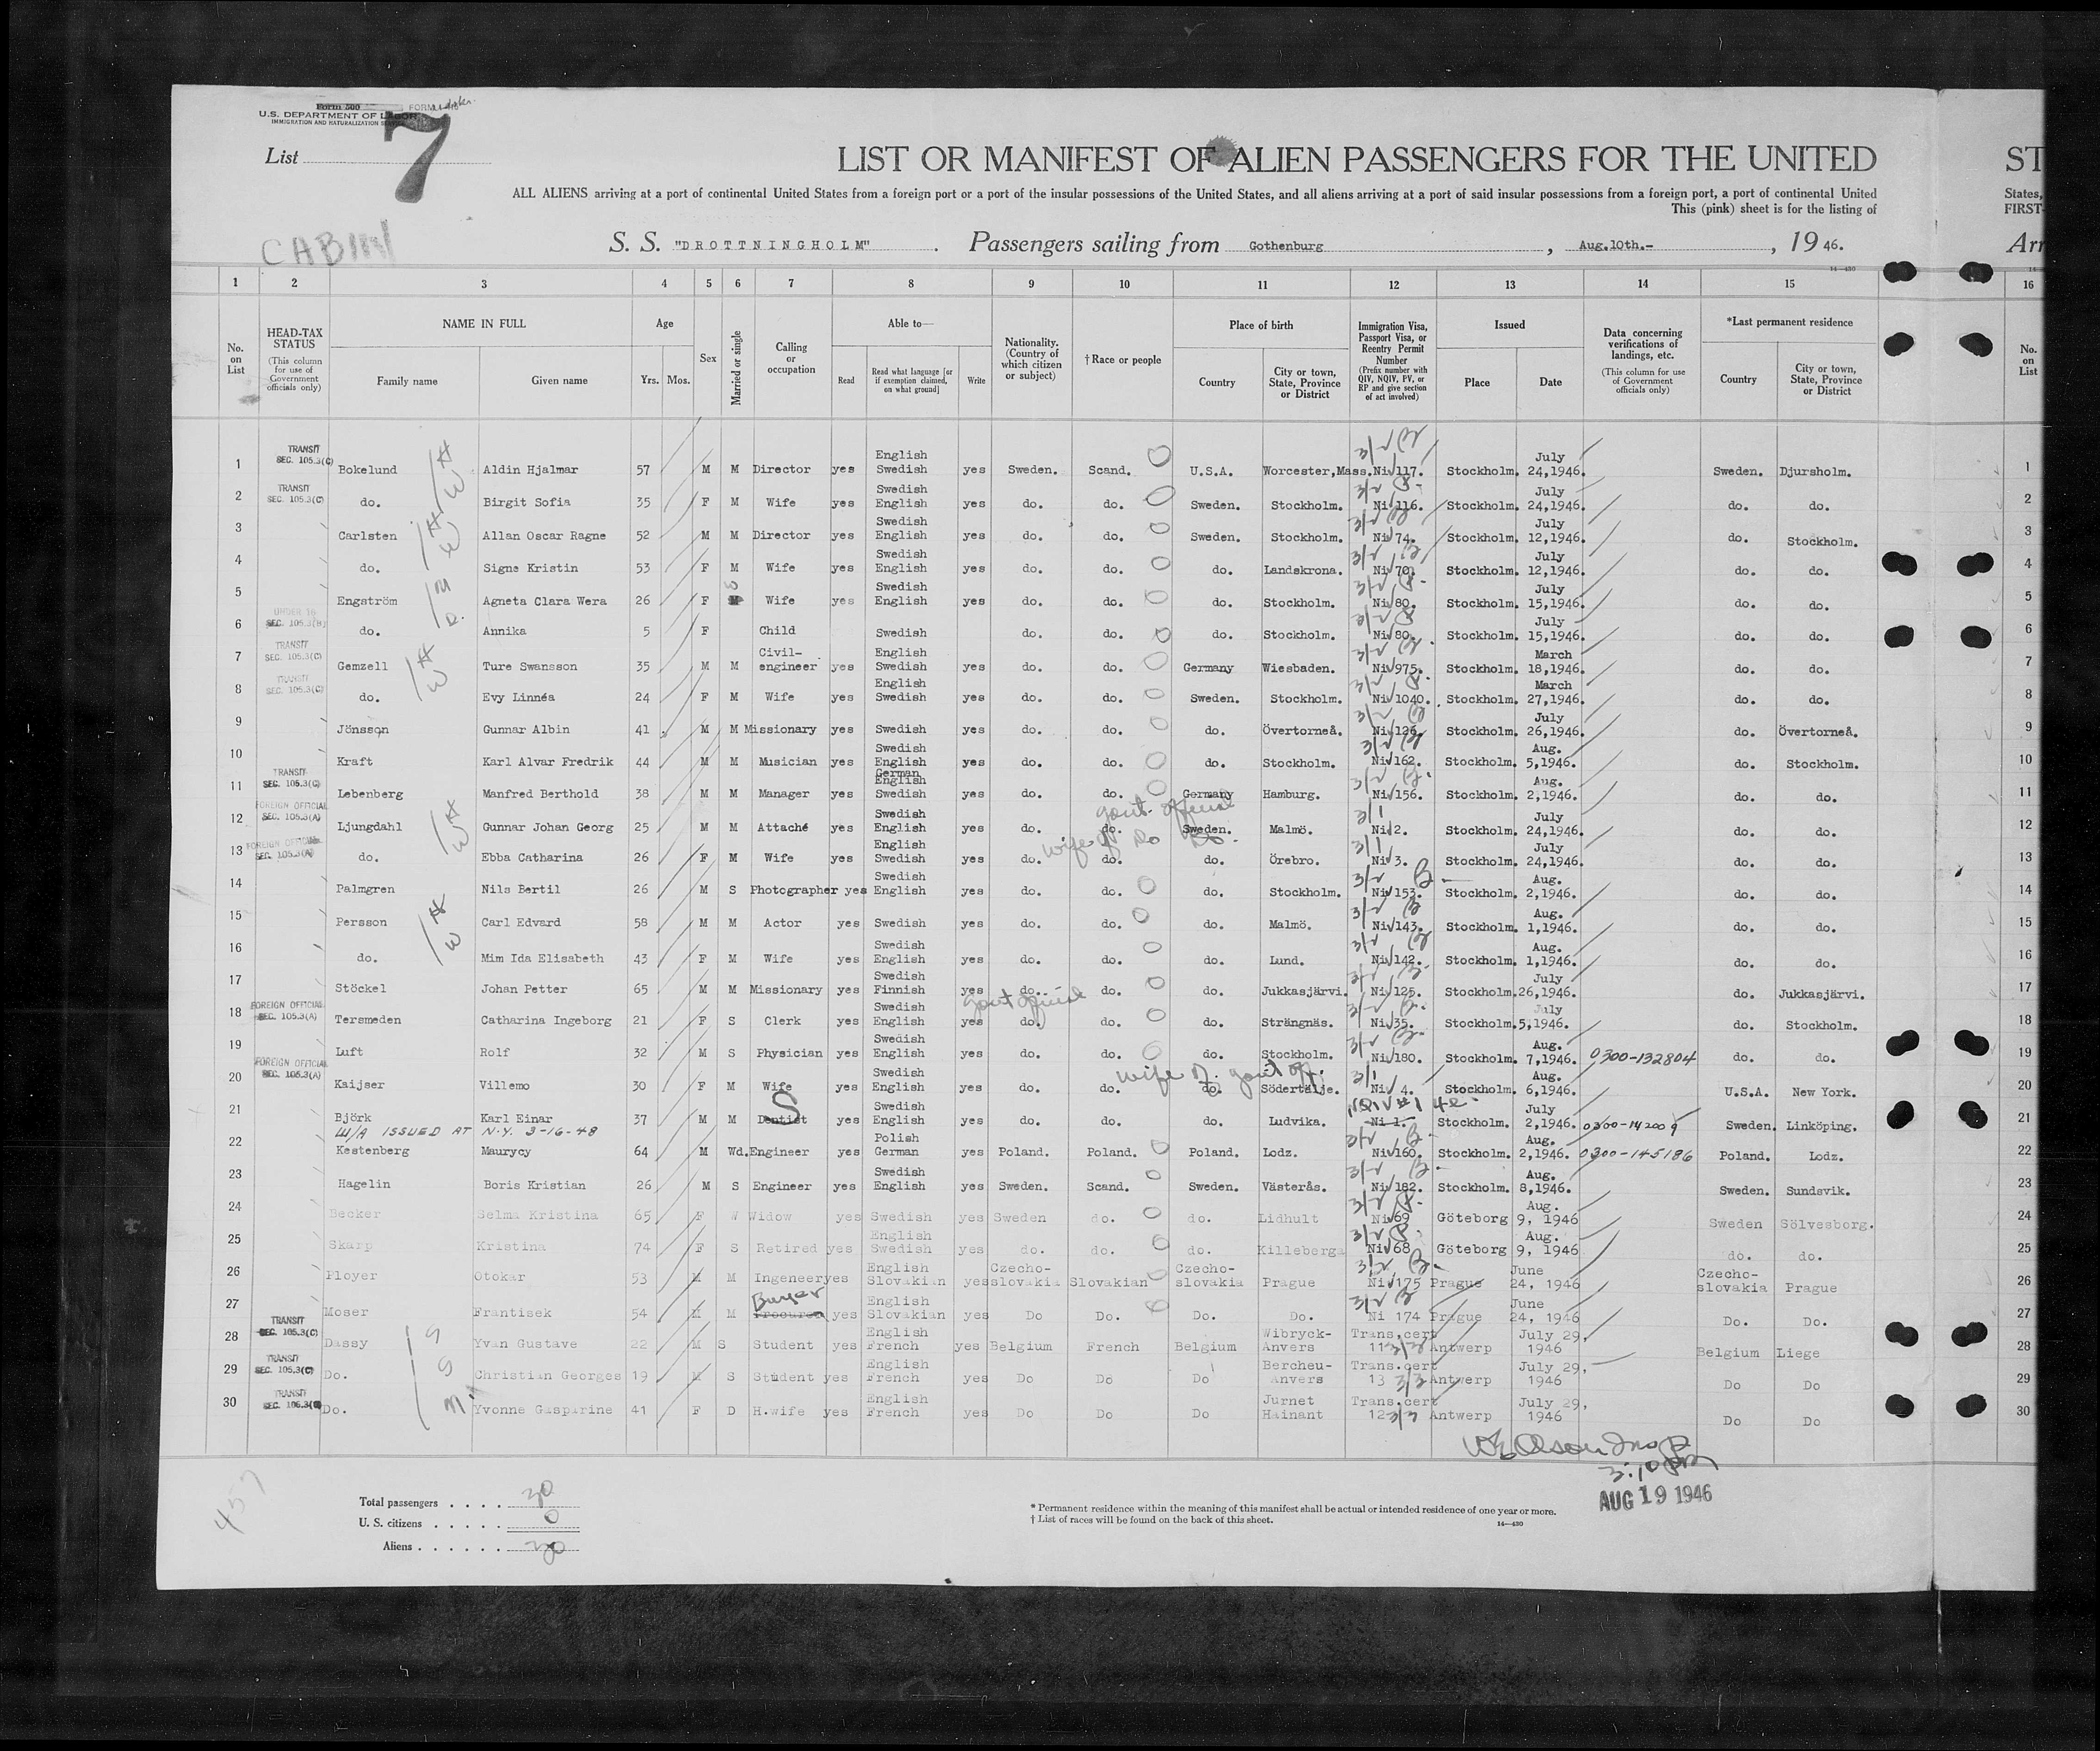 Form 500 FORM
U.S. DEPARTMENT OF LABOR
IMMIGRATION AND NATURALIZATION SERVICE
List 7
LIST OR MANIFEST OF ALIEN PASSENGERS FOR THE UNITED ST
ALL ALIENS arriving at a port of continental United States from a foreign port or a port of the insular possessions of the United States, and all aliens arriving at a port of said insular possessions from a foreign port, a port of continental United States,
This (pink) sheet is for the listing of FIRST-
CABIN
S. S. "DROTTNINGHOLM". Passengers sailing from Gothenburg, Aug.10th.-, 19 46. Arr
14—430
1 2 3 4 5 6 7 8 9 10 11 12 13 14 15 16
No. on List
HEAD-TAX STATUS (This column for use of Government officials only)
NAME IN FULL
Family name Given name
Age Yrs. Mos.
Sex
Married or single
Calling or occupation
Able to—
Read Read what language [or if exemption claimed, on what ground] Write
Nationality. (Country of which citizen or subject)
† Race or people
Place of birth
Country City or town, State, Province or District
Immigration Visa, Passport Visa, or Reentry Permit Number (Prefix number with QIV, NQIV, PV, or RP and give section of act involved)
Issued
Place Date
Data concerning verifications of landings, etc. (This column for use of Government officials only)
*Last permanent residence
Country City or town, State, Province or District
No. on List
1 TRANSIT SEC. 105.3(C) Bokelund Aldin Hjalmar 57 M M Director yes English Swedish yes Sweden. Scand. U.S.A. Worcester,Mass. Niv117. Stockholm. July 24,1946. Sweden. Djursholm. 1
2 TRANSIT SEC. 105.3(C) do. Birgit Sofia 35 F M Wife yes Swedish English yes do. do. Sweden. Stockholm. Niv116. Stockholm. July 24,1946. do. do. 2
3 Carlsten Allan Oscar Ragne 52 M M Director yes Swedish English yes do. do. Sweden. Stockholm. Niv74. Stockholm. July 12,1946. do. Stockholm. 3
4 do. Signe Kristin 53 F M Wife yes Swedish English yes do. do. do. Landskrona. Niv70. Stockholm. July 12,1946. do. do. 4
5 Engström Agneta Clara Wera 26 F M Wife yes Swedish English yes do. do. do. Stockholm. Niv80. Stockholm. July 15,1946. do. do. 5
6 UNDER 16 SEC. 105.3(B) do. Annika 5 F Child Swedish do. do. do. Stockholm. Niv80. Stockholm. July 15,1946. do. do. 6
7 TRANSIT SEC. 105.3(C) Gemzell Ture Swansson 35 M M Civil-engineer yes English Swedish yes do. do. Germany Wiesbaden. Niv975. Stockholm. March 18,1946. do. do. 7
8 TRANSIT SEC. 105.3(C) do. Evy Linnéa 24 F M Wife yes English Swedish yes do. do. Sweden. Stockholm. Niv1040. Stockholm. March 27,1946. do. do. 8
9 Jönsson Gunnar Albin 41 M M Missionary yes Swedish yes do. do. do. Övertorneå. Niv126. Stockholm. July 26,1946. do. Övertorneå. 9
10 Kraft Karl Alvar Fredrik 44 M M Musician yes Swedish English German yes do. do. do. Stockholm. Niv162. Stockholm. Aug. 5,1946. do. Stockholm. 10
11 TRANSIT SEC. 105.3(C) Lebenberg Manfred Berthold 38 M M Manager yes English Swedish yes do. do. Germany Hamburg. Niv156. Stockholm. Aug. 2,1946. do. do. 11
12 FOREIGN OFFICIAL SEC. 105.3(A) Ljungdahl Gunnar Johan Georg 25 M M Attaché yes Swedish English yes do. do. govt. official Sweden. Malmö. 3/1 Niv2. Stockholm. July 24,1946. do. do. 12
13 FOREIGN OFFICIAL SEC. 105.3(A) do. Ebba Catharina 26 F M Wife yes English Swedish yes do. wife of Do Do. do. do. Örebro. 3/1 Niv3. Stockholm. July 24,1946. do. do. 13
14 Palmgren Nils Bertil 26 M S Photographer yes Swedish English yes do. do. do. Stockholm. Niv153. Stockholm. Aug. 2,1946. do. do. 14
15 Persson Carl Edvard 58 M M Actor yes Swedish yes do. do. do. Malmö. Niv143. Stockholm. Aug. 1,1946. do. do. 15
16 do. Mim Ida Elisabeth 43 F M Wife yes Swedish English yes do. do. do. Lund. Niv142. Stockholm. Aug. 1,1946. do. do. 16
17 Stöckel Johan Petter 65 M M Missionary yes Swedish Finnish yes do. do. do. Jukkasjärvi. Niv125. Stockholm. July 26,1946. do. Jukkasjärvi. 17
18 FOREIGN OFFICIAL SEC. 105.3(A) Tersmeden Catharina Ingeborg 21 F S Clerk yes Swedish English yes govt official do. do. do. Strängnäs. Niv35. Stockholm. July 5,1946. do. Stockholm. 18
19 Luft Rolf 32 M S Physician yes Swedish English yes do. do. do. Stockholm. Niv180. Stockholm. Aug. 7,1946. 0300-132804 do. do. 19
20 FOREIGN OFFICIAL SEC. 105.3(A) Kaijser Villemo 30 F M Wife yes Swedish English yes do. do. wife of govt off. do. Södertälje. 3/1 Niv 4. Stockholm. Aug. 6,1946. U.S.A. New York. 20
21 Björk Karl Einar 37 M M Dentist S yes Swedish English yes do. do. do. Ludvika. Ni 1. NQIV#1 4e Stockholm. July 2,1946. 0300-142009 Sweden. Linköping. 21
W/A ISSUED AT N.Y. 3-16-48
22 Kestenberg Maurycy 64 M Wd. Engineer yes Polish German yes Poland. Poland. Poland. Lodz. Niv160. Stockholm. Aug. 2,1946. 0300-145186 Poland. Lodz. 22
23 Hagelin Boris Kristian 26 M S Engineer yes Swedish English yes Sweden. Scand. Sweden. Västerås. Niv182. Stockholm. Aug. 8,1946. Sweden. Sundsvik. 23
24 Becker Selma Kristina 65 F W Widow yes Swedish yes Sweden do. do. Lidhult Niv69 Göteborg Aug. 9, 1946 Sweden Sölvesborg. 24
25 Skarp Kristina 74 F S Retired yes English Swedish yes do. do. do. Killeberga Niv68 Göteborg Aug. 9, 1946 do. do. 25
26 Ployer Otokar 53 M M Ingeneer yes English Slovakian yes Czecho-slovakia Slovakian Czecho-slovakia Prague Niv175 Prague June 24, 1946 Czecho-slovakia Prague 26
27 Moser Frantisek 54 M M Buyer yes English Slovakian yes Do Do. Do. Do. Ni 174 Prague June 24, 1946 Do. Do. 27
28 TRANSIT SEC. 105.3(C) Dassy Yvan Gustave 22 M S Student yes English French yes Belgium French Belgium Wibryck-Anvers Trans.cert 11 3/3 Antwerp July 29, 1946 Belgium Liege 28
29 TRANSIT SEC. 105.3(C) Do. Christian Georges 19 M S Student yes English French yes Do Do Do Bercheu-Anvers Trans.cert 13 3/3 Antwerp July 29, 1946 Do Do 29
30 TRANSIT SEC. 105.3(C) Do. Yvonne Gasparine 41 F D H.wife yes English French yes Do Do Do Jurnet Hainant Trans.cert 12 3/3 Antwerp July 29, 1946 Do Do 30
Olson Insp
3:10 PM
AUG 19 1946
457
Total passengers . . . . 30
U. S. citizens . . . . . 0
Aliens . . . . . . 30
* Permanent residence within the meaning of this manifest shall be actual or intended residence of one year or more.
† List of races will be found on the back of this sheet.
14—430